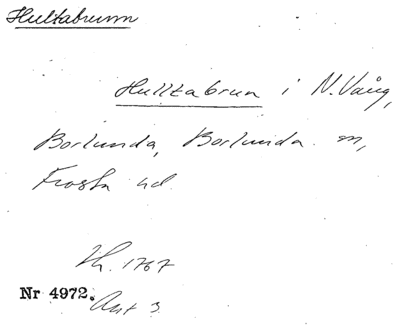 Hultabrunn
Hulltabrun i N. Vång,
Borlunda, Borlunda sn,
Frosta hd
Th. 1767
Nr 4972. Akt 3